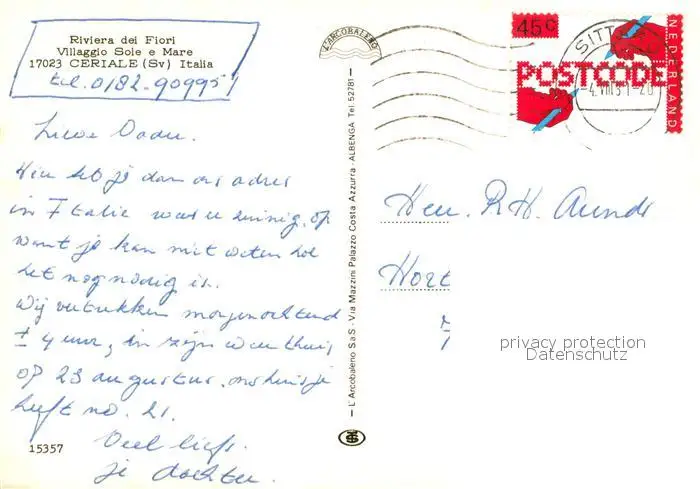 Riviera dei Fiori
Villaggio Sole e Mare
17023 CERIALE (Sv) Italia
tel. 0182-909951
Lieve Dadu.
Hier heb je dan ons adres
in Italie was u zuinig op
want je kan niet weten hoe
het nog nodig is.
Wij vertrekken morgenochtend
± 4 uur, en zijn weer thuis
op 23 augustus. ons huisje
heeft no. 21.
Veel liefs.
je dochter.
15357
L'ARCOBALENO
L'Arcobaleno S.a.S - Via Mazzini Palazzo Costa Azzurra - ALBENGA Tel. 52781
45c
POSTCODE
NEDERLAND
SITT
Heer. R.H.
Hort
privacy protection
Datenschutz